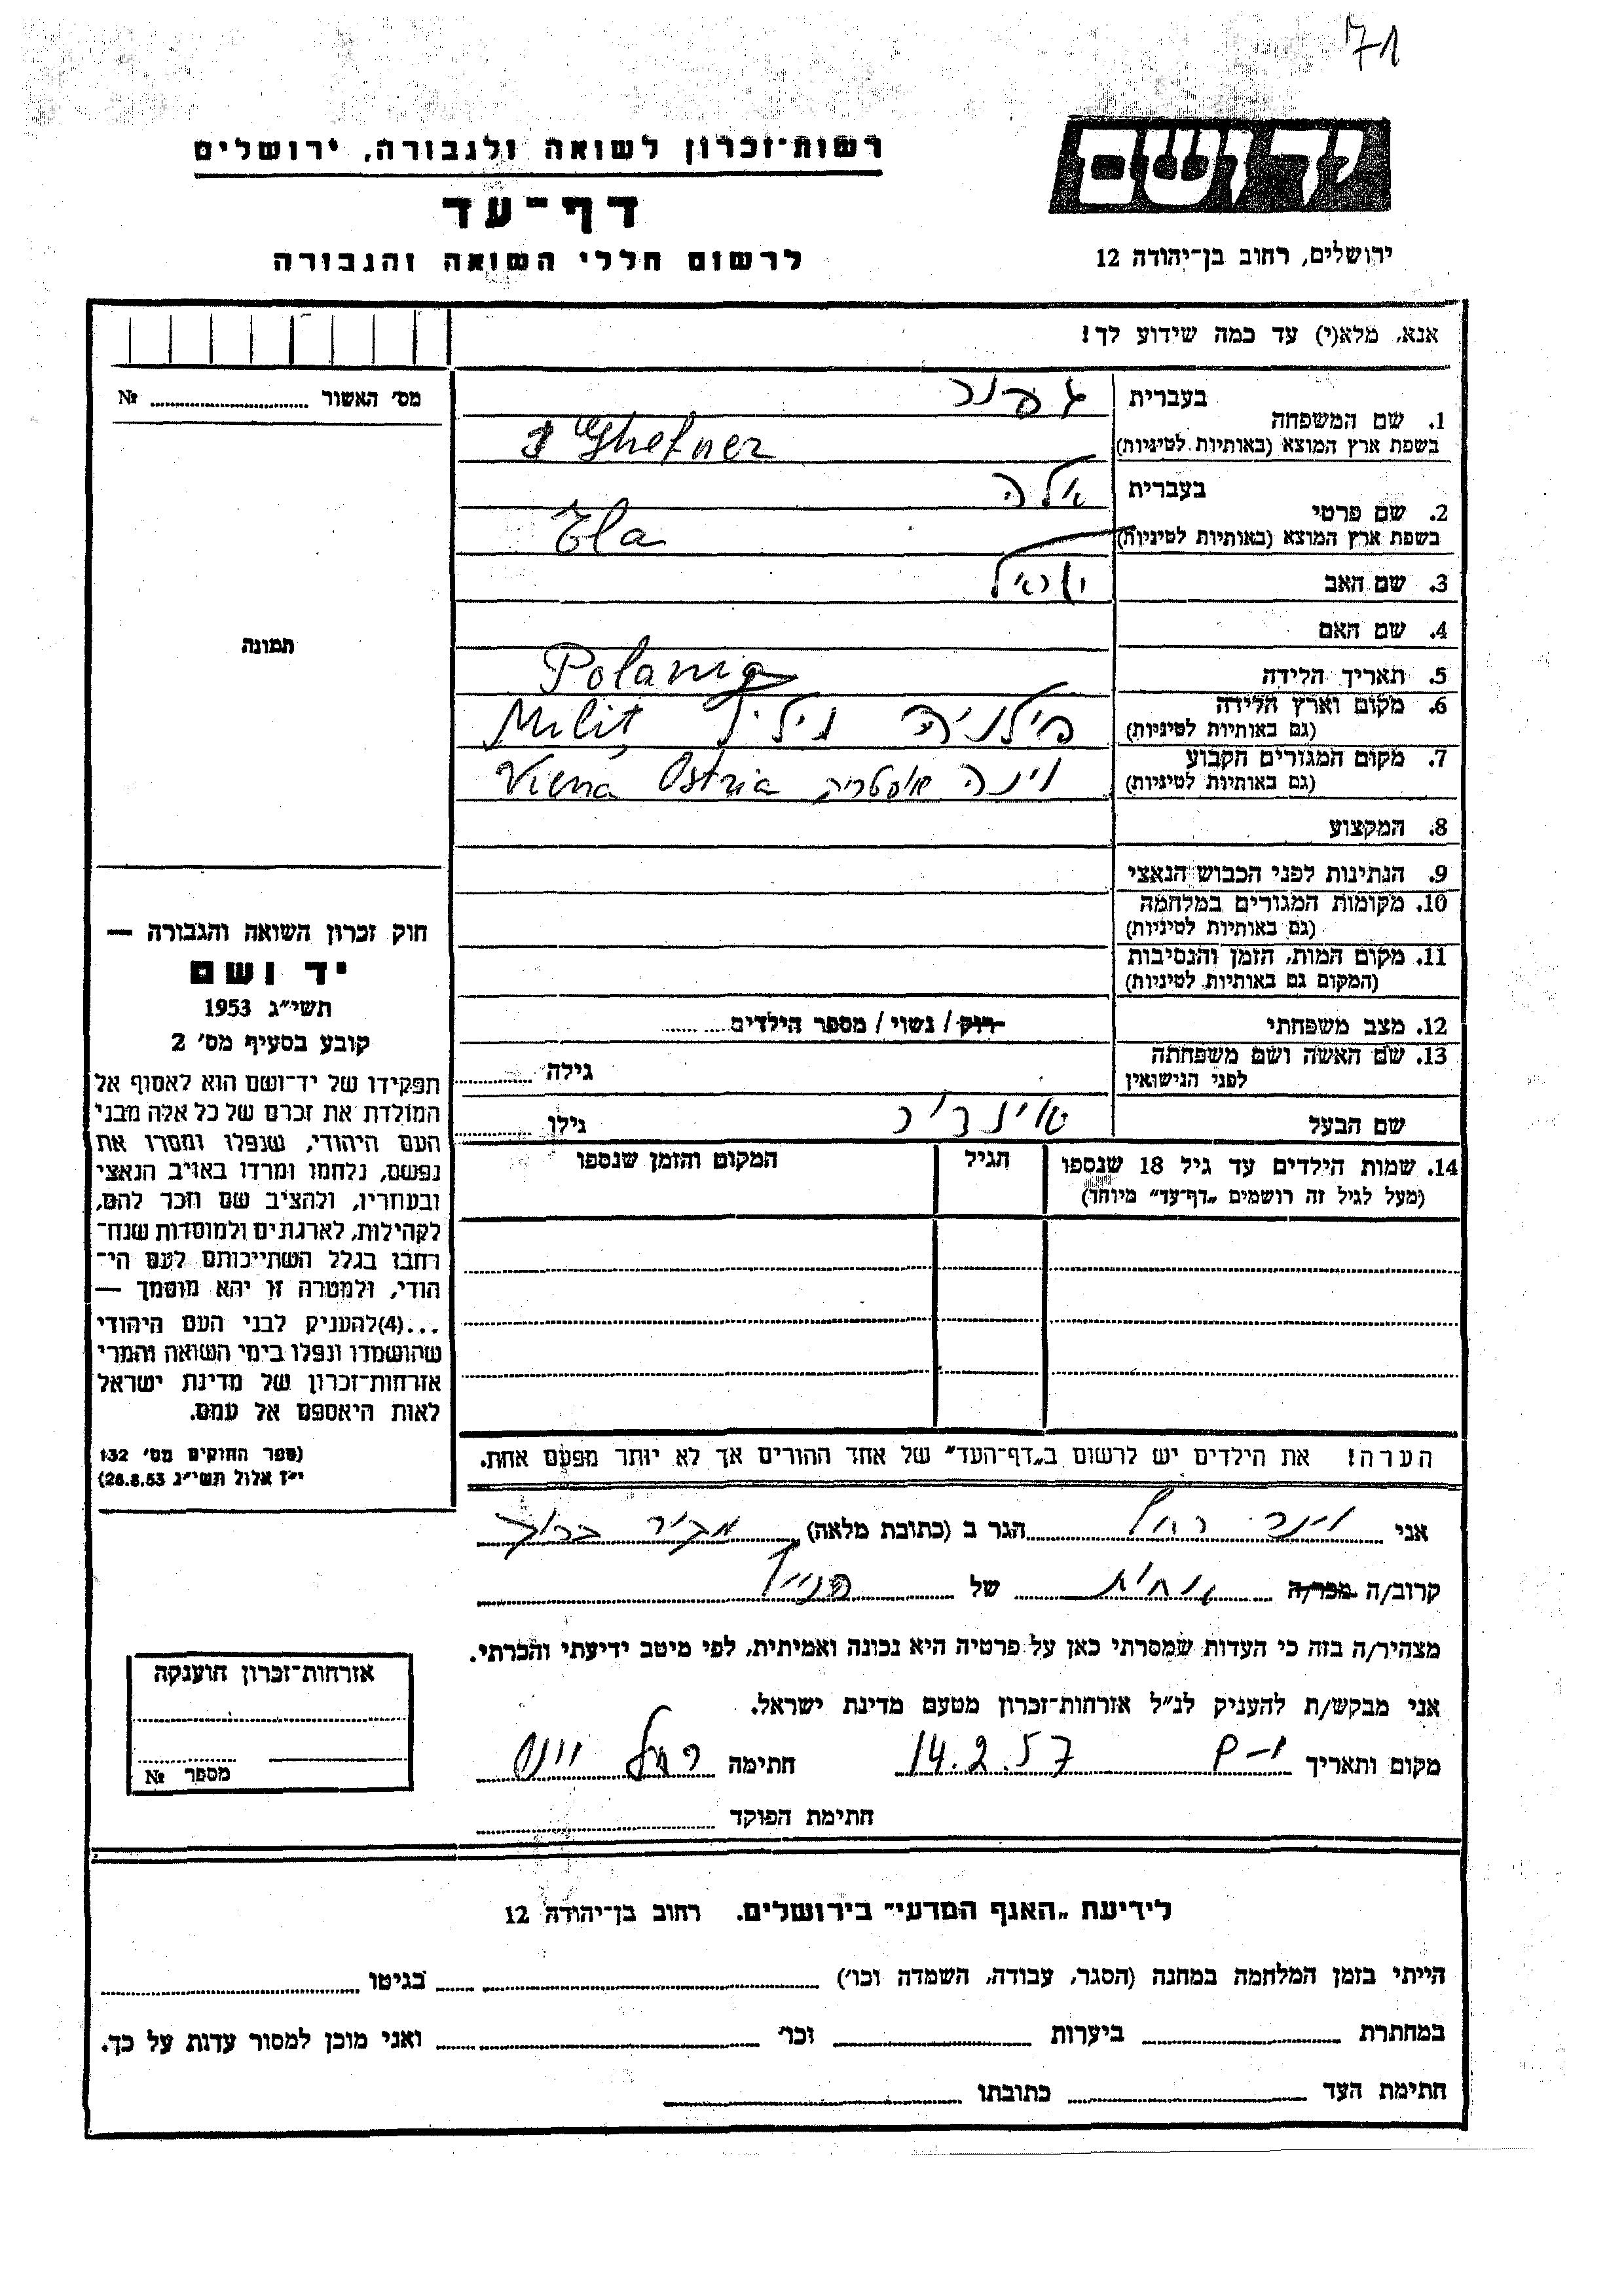 71
רשות־זכרון לשואה ולגבורה, ירושלים
יד ושם
דף־עד
לרשום חללי השואה והגבורה
ירושלים, רחוב בן־יהודה 12
אנא, מלא(י) עד כמה שידוע לך!
מס׳ האשור № 
1. שם המשפחה
בעברית גפנר
בשפת ארץ המוצא (באותיות לטיניות) Ghefner
2. שם פרטי
בעברית אלה
בשפת ארץ המוצא (באותיות לטיניות) Ela
3. שם האב
4. שם האם
תמונה
5. תאריך הלידה
Polania
6. מקום וארץ הלידה
(גם באותיות לטיניות)
פולניה Milit
7. מקום המגורים הקבוע
(גם באותיות לטיניות)
וינה אוסטריה Viena Ostria
8. המקצוע
9. הנתינות לפני הכבוש הנאצי
10. מקומות המגורים במלחמה
(גם באותיות לטיניות)
11. מקום המות, הזמן והנסיבות
(המקום גם באותיות לטיניות)
12. מצב משפחתי רוק / נשוי / מספר הילדים
13. שם האשה ושם משפחתה
לפני הנישואין
גילה
שם הבעל
גילו
14. שמות הילדים עד גיל 18 שנספו
(מעל לגיל זה רושמים „דף־עד״ מיוחד)
הגיל
המקום והזמן שנספו
הערה! את הילדים יש לרשום ב„דף־העד״ של אחד ההורים אך לא יותר מפעם אחת.
חוק זכרון השואה והגבורה —
יד ושם
תשי״ג 1953
קובע בסעיף מס׳ 2
תפקידו של יד־ושם הוא לאסוף אל
המולדת את זכרם של כל אלה מבני
העם היהודי, שנפלו ומסרו את
נפשם, נלחמו ומרדו באויב הנאצי
ובעוזריו, ולהציב שם וזכר להם,
לקהילות, לארגונים ולמוסדות שנח־
רבו בגלל השתייכותם לעם הי־
הודי, ולמטרה זו יהא מוסמך —
...(4)להעניק לבני העם היהודי
שהושמדו ונפלו בימי השואה והמרי
אזרחות־זכרון של מדינת ישראל
לאות היאספם אל עמם.
(ספר החוקים מס׳ 132
י״ז אלול תשי״ג 28.8.53)
אני רחל הגר ב (כתובת מלאה)
קרוב/ה מכר/ה של
מצהיר/ה בזה כי העדות שמסרתי כאן על פרטיה היא נכונה ואמיתית, לפי מיטב ידיעתי והכרתי.
אני מבקש/ת להעניק לנ״ל אזרחות־זכרון מטעם מדינת ישראל.
מקום ותאריך 14.2.57 חתימה רחל
חתימת הפוקד
אזרחות־זכרון הוענקה
מספר №
לידיעת „האגף המדעי״ בירושלים. רחוב בן־יהודה 12
הייתי בזמן המלחמה במחנה (הסגר, עבודה, השמדה וכו׳) בגיטו
במחתרת ביערות וכו׳ ואני מוכן למסור עדות על כך.
חתימת העד כתובתו